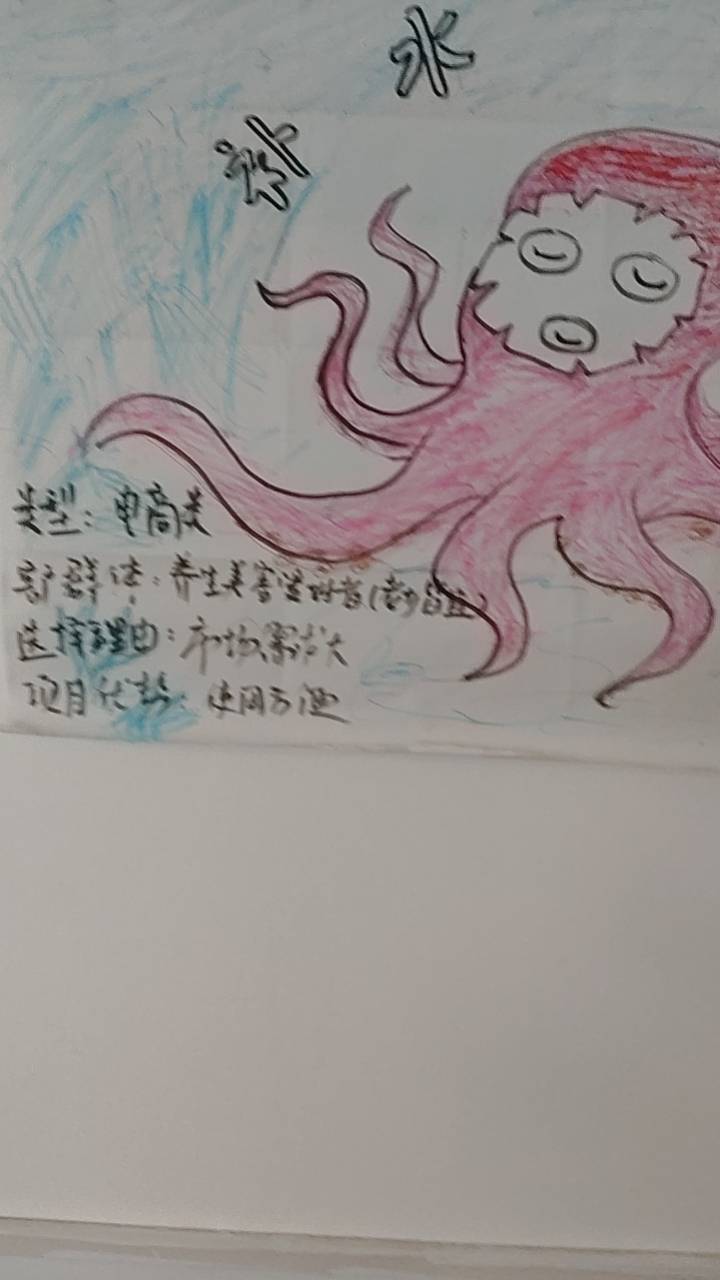 补水
类型：电商类
客户群体：养生美容爱好者(老少皆宜)
选择理由：市场需求大
项目优势：使用方便